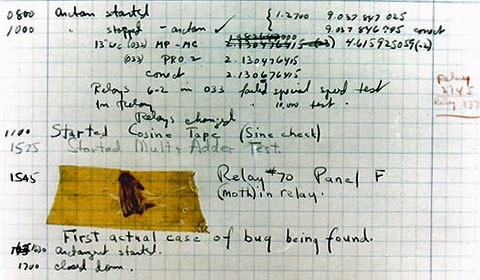 0800 arctan started { 1.2700 9.037 847 025
1000 " stopped - arctan ✓ 9.037 846 995 correct
13" UC (032) MP-MC 2.130476415 (-3) 4.615925059(-2)
(033) PRO 2 2.130476415
correct 2.130676415
Relays 6-2 in 033 failed special speed test
in relay " 11,000 test.
Relays changed
Relay
3145
Relay 337
1100 Started Cosine Tape (Sine check)
1525 Started Mult + Adder Test.
1545 Relay #70 Panel F
(moth) in relay.
First actual case of bug being found.
1630 arctangent started.
1700 closed down.